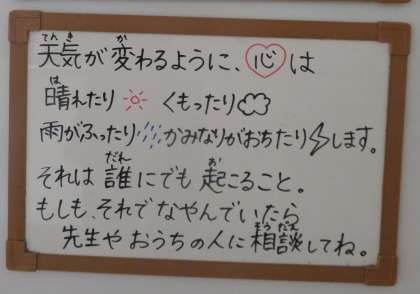 天気が変わるように、心は
晴れたり くもったり
雨がふったり かみなりがおちたり します。
それは誰にでも起こること。
もしも、それでなやんでいたら
先生やおうちの人に相談してね。